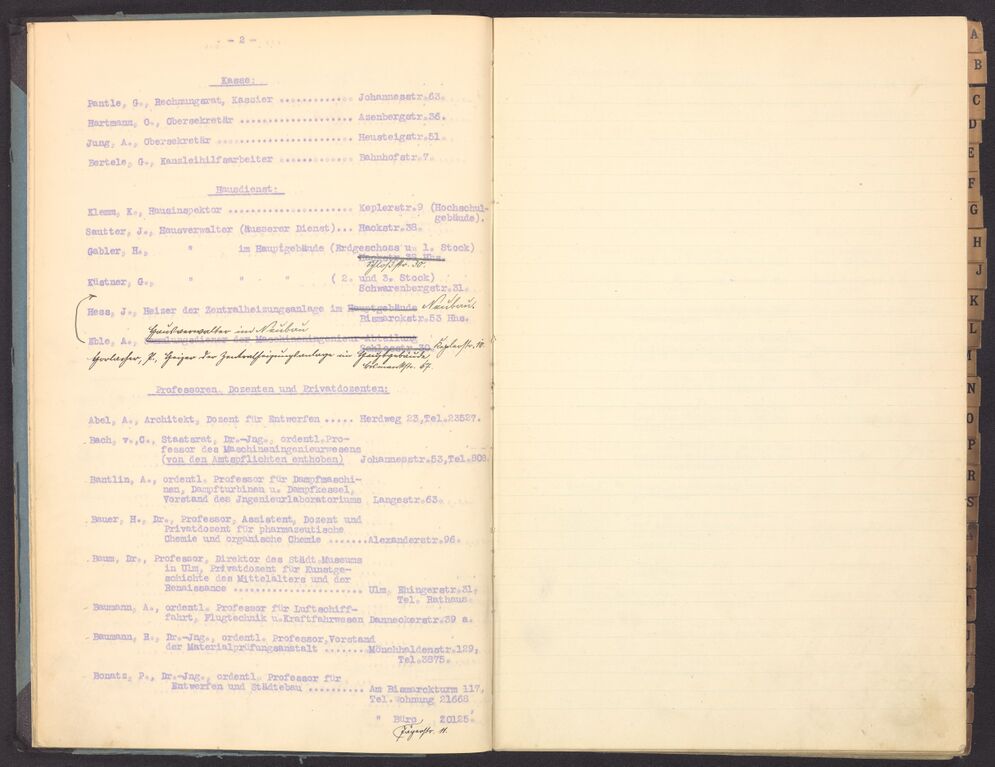 - 2 -
Kasse:
Pantle, G., Rechnungsrat, Kassier ............ Johannesstr.63.
Hartmann, O., Obersekretär .................. Azenbergstr.36.
Jung, A., Obersekretär ...................... Heusteigstr.51.
Bertele, G., Kanzleihilfsarbeiter ............ Bahnhofstr.7.
Hausdienst:
Klemm, K., Hausinspektor .................... Keplerstr.9 (Hochschul-
gebäude).
Sautter, J., Hausverwalter (äusserer Dienst)... Hackstr.38.
Gabler, H., " im Hauptgebäude (Erdgeschoss u. 1. Stock)
Hackstr.38 Hhs.
Schloßstr. 30.
Küstner, G., " " " ( 2. und 3. Stock)
Schwarenbergstr.31.
Hess, J., Heizer der Zentralheizungsanlage im Hauptgebäude Neubau.
Bismarckstr.53 Hhs.
Hausverwalter im Neubau
Eble, A., Sammlungsdiener der Maschineningenieur-Abteilung
Schlosstr.30 Keplerstr. 10.
Gerlacher, P., Heizer der Zentralheizungsanlage im Hauptgebäude,
Bismarckstr. 67.
Professoren, Dozenten und Privatdozenten:
Abel, A., Architekt, Dozent für Entwerfen ..... Herdweg 23,Tel.23527.
Bach, v.,C., Staatsrat, Dr.-Jng., ordentl.Pro-
fessor des Maschineningenieurwesens
(von den Amtspflichten enthoben) Johannesstr.53,Tel.808.
Bantlin, A., ordentl. Professor für Dampfmaschi-
nen, Dampfturbinen u. Dampfkessel,
Vorstand des Jngenieurlaboratoriums Langestr.63.
Bauer, H., Dr., Professor, Assistent, Dozent und
Privatdozent für pharmazeutische
Chemie und organische Chemie .......Alexanderstr.96.
Baum, Dr., Professor, Direktor des Städt.Museums
in Ulm, Privatdozent für Kunstge-
schichte des Mittelalters und der
Renaissance .................... Ulm, Ehingerstr.31,
Tel. Rathaus.
Baumann, A., ordentl. Professor für Luftschiff-
fahrt, Flugtechnik u.Kraftfahrwesen Danneckerstr.39 a.
Baumann, R., Dr.-Jng., ordentl. Professor,Vorstand
der Materialprüfungsanstalt ........Mönchhaldenstr.129,
Tel.3875.
Bonatz, P., Dr.-Jng., ordentl. Professor für
Entwerfen und Städtebau .......... Am Bismarckturm 117,
Tel. ohnung 21668
" Büro 20125.
Jägerstr. 11.
A
B
C
D
E
F
G
H
J
K
L
M
N
O
P
R
S